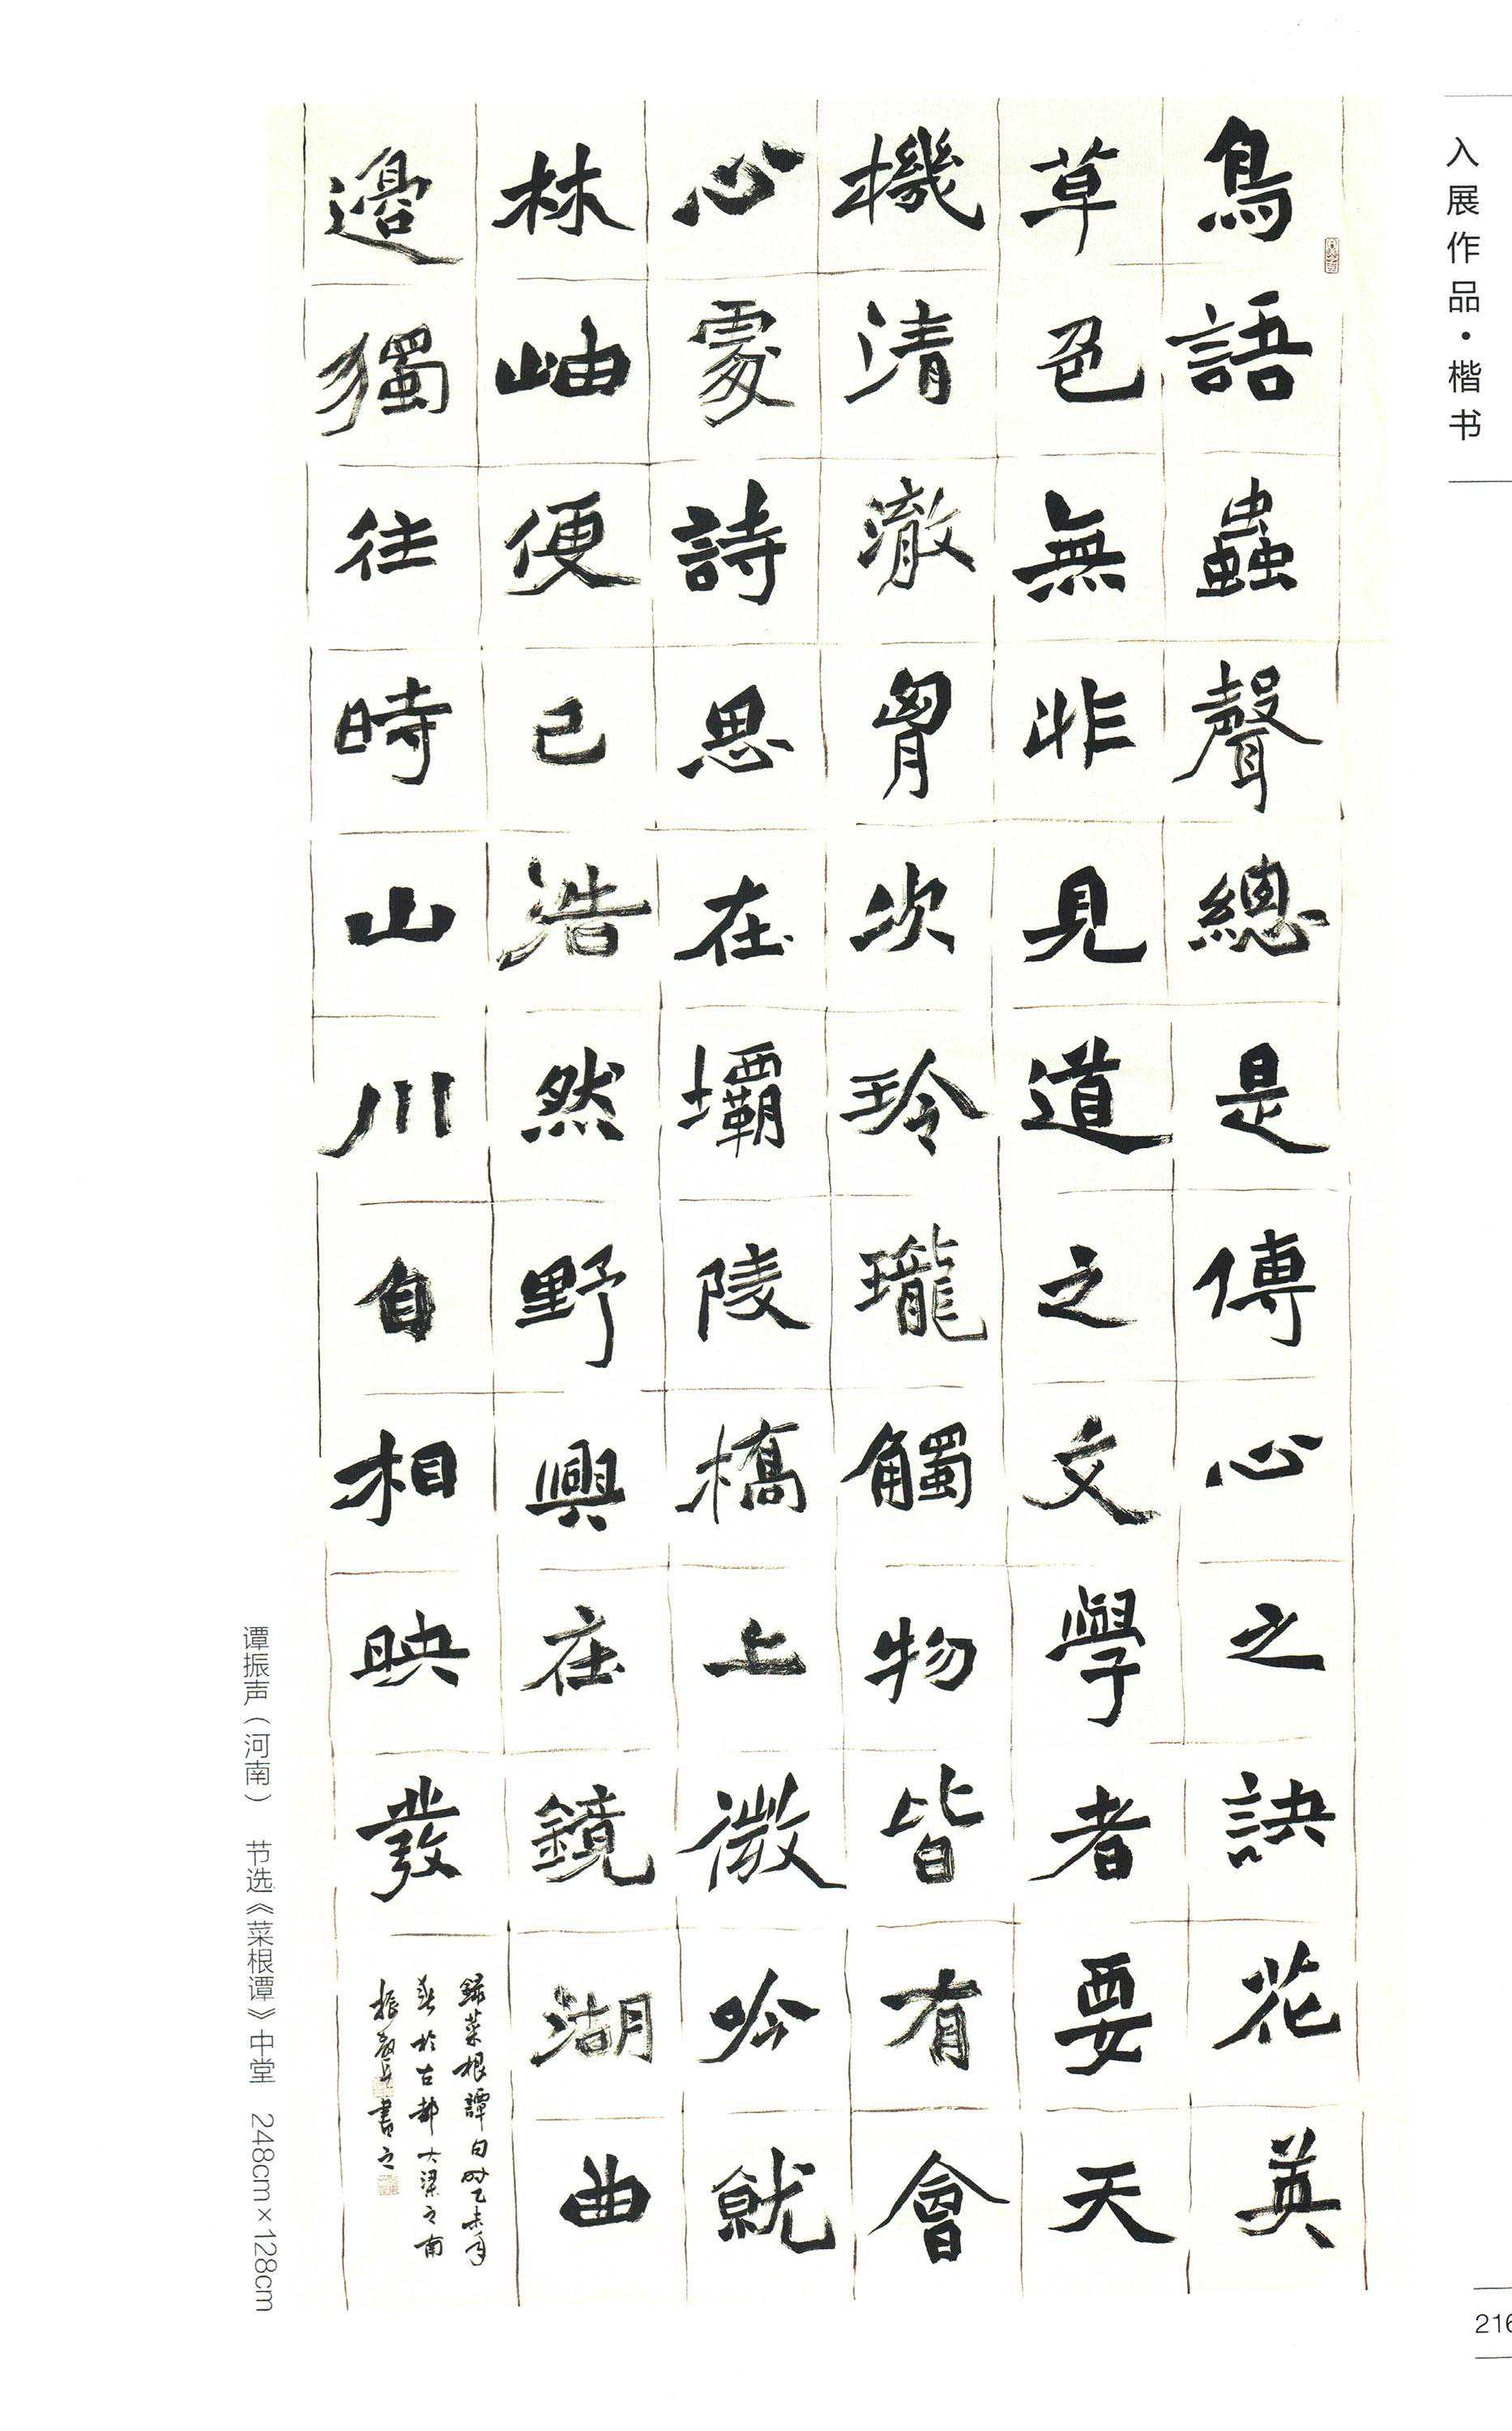 入展作品·楷书
鳥語蟲聲總是傳心之訣花英
草色無非見道之文學者要天
機清澈胷次玲瓏觸物皆有會
心處詩思在灞陵橋上微吟就
林岫便已浩然野興在鏡湖曲
邊獨往時山川自相映發
録菜根譚句時乙未年
於古都大梁之南
振聲書之
谭振声（河南） 节选《菜根谭》中堂 248cm×128cm
216